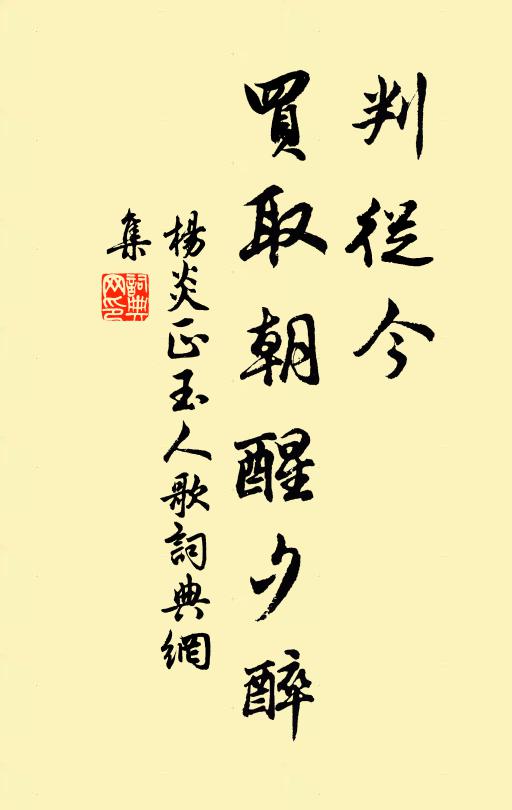 判從今
買取朝醒夕醉
楊炎正玉人歌詞典網
集
詞典網印